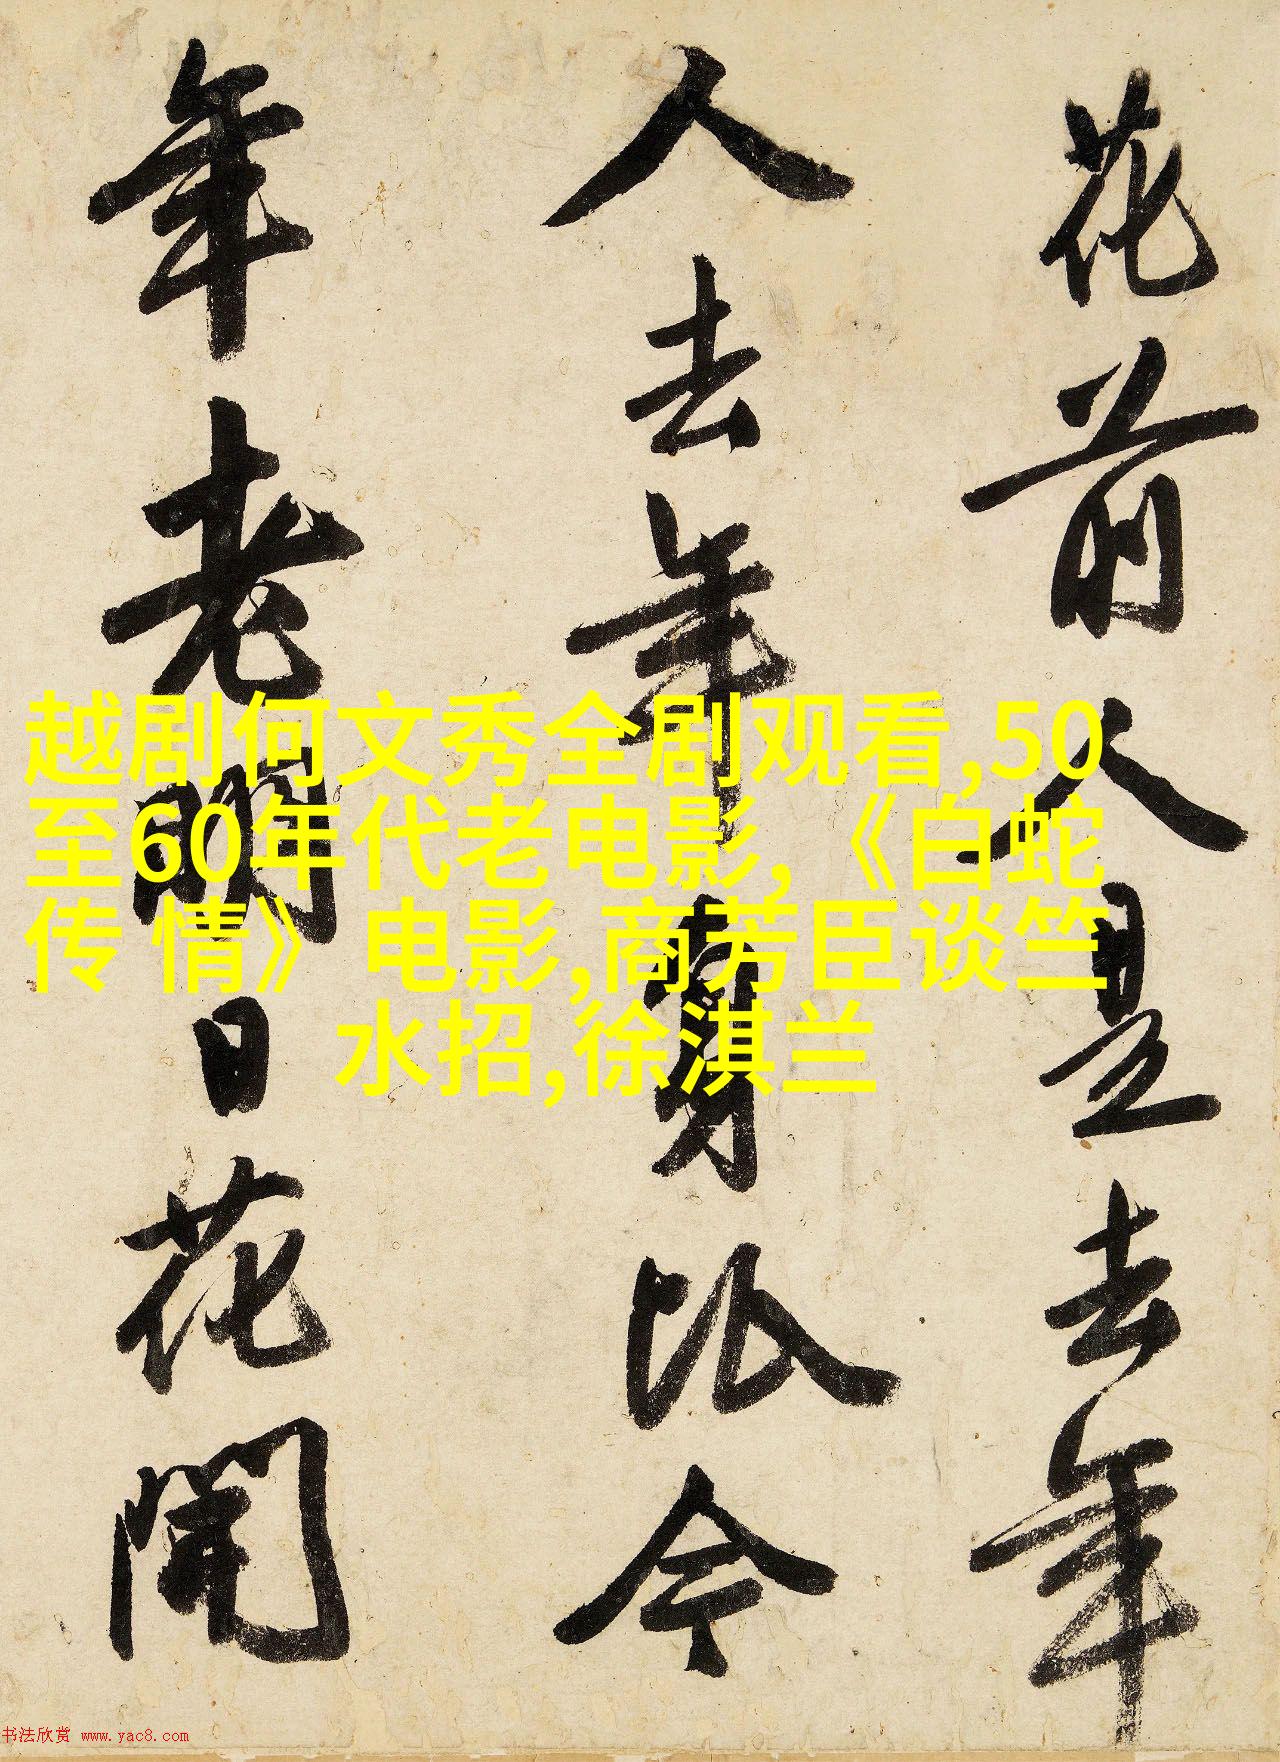 花前人是去年
人去年身比今
年老明日花開
越剧何文秀全剧观看,50
至60年代老电影,《白蛇
传 情》电影,商芳臣谈竺
水招,徐淇兰
书法欣赏 www.yac8.com